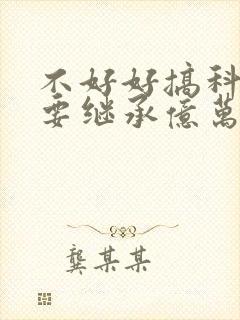 不好好搞科
要继承億萬
龔某某